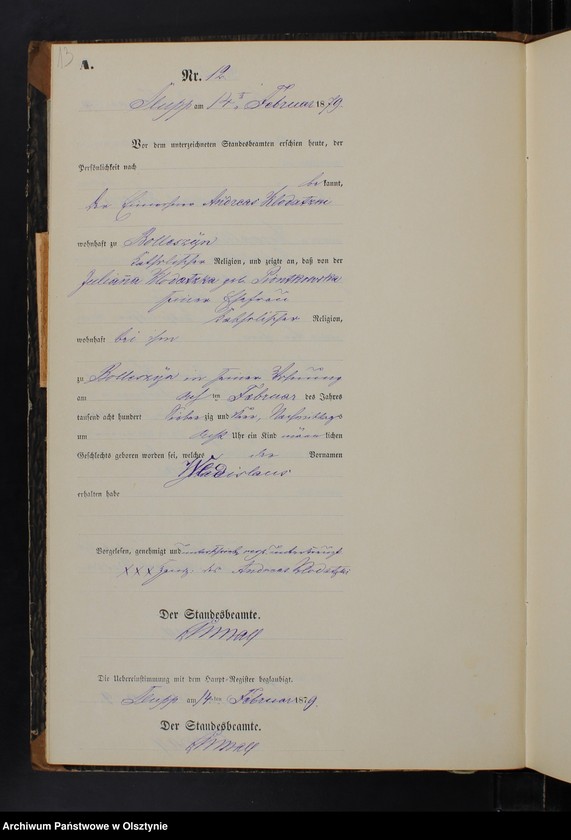 13
A.
Nr. 12
Stupp am 14 ten Februar 1879.
Vor dem unterzeichneten Standesbeamten erschien heute, der
Persönlichkeit nach
be kannt,
der Einwohner Andreas Wlodatzka
wohnhaft zu Bolleszyn
katholischer Religion, und zeigte an, daß von der
Julianna Wlodatzka geb. Piontkowska
seiner Ehefrau
katholischer Religion,
wohnhaft bei ihm
zu Bolleszyn in seiner Wohnung
am ten Februar des Jahres
tausend acht hundert sieben zig und neun, Nachmittags
um Uhr ein Kind männ lichen
Geschlechts geboren worden sei, welches den Vornamen
Wladislaus
erhalten habe
Vorgelesen, genehmigt und
XXX des Andreas Wlodatzka
Der Standesbeamte.
Die Uebereinstimmung mit dem Haupt-Register beglaubigt.
Stupp am 14 ten Februar 1879.
Der Standesbeamte.
Archiwum Państwowe w Olsztynie